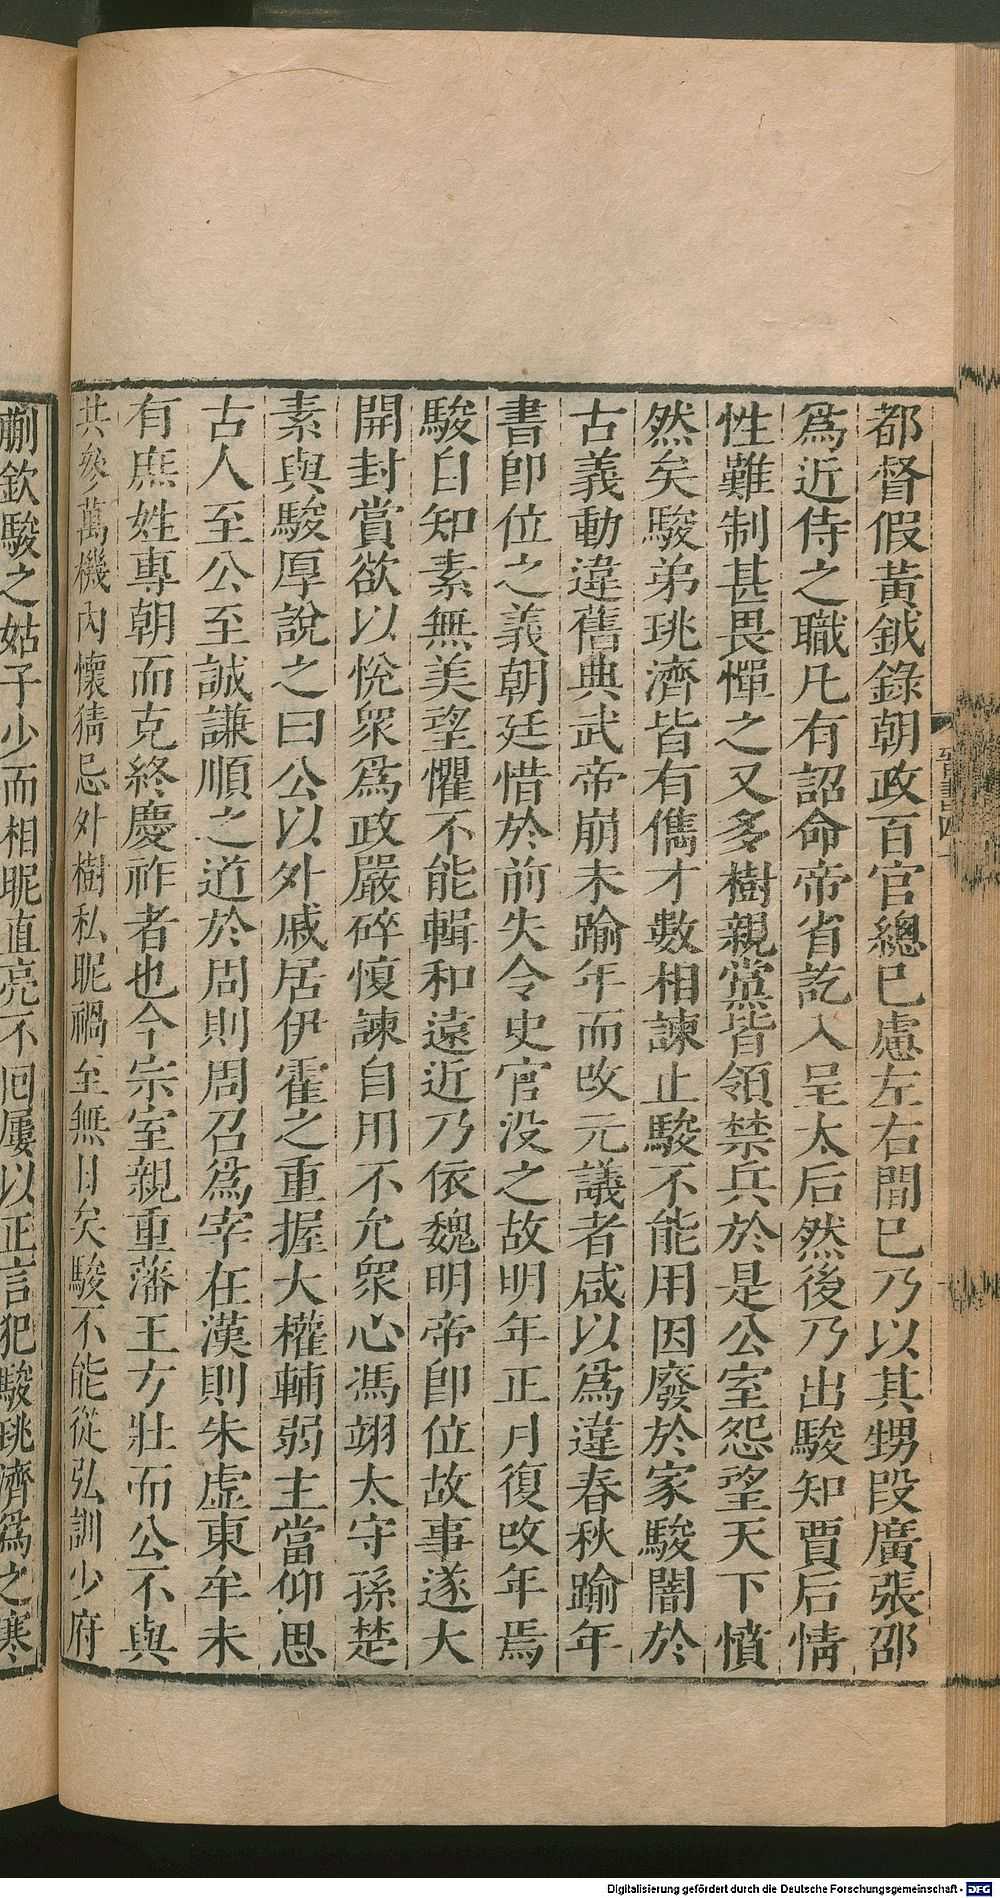 都督假黃鉞錄朝政百官總巳慮左右間巳乃以其甥段廣張邵
爲近侍之職凡有詔命帝省訖入呈太后然後乃出駿知賈后情
性難制甚畏憚之又多樹親黨皆領禁兵於是公室怨望天下憤
然矣駿弟珧濟皆有儁才數相諫止駿不能用因廢於家駿闇於
古義動違舊典武帝崩未踰年而改元議者咸以爲違春秋踰年
書卽位之義朝廷惜於前失令史官没之故明年正月復改年焉
駿自知素無美望懼不能輯和遠近乃依魏明帝卽位故事遂大
開封賞欲以悅衆爲政嚴碎愎諫自用不允衆心馮翊太守孫楚
素與駿厚說之曰公以外戚居伊霍之重握大權輔弱主當仰思
古人至公至誠謙順之道於周則周召爲宰在漢則朱虛東牟未
有庶姓專朝而克終慶祚者也今宗室親重藩王方壯而公不與
共參萬機內懷猜忌外樹私昵禍至無日矣駿不能從弘訓少府
蒯欽駿之姑子少而相昵直亮不回屢以正言犯駿珧濟爲之寒
Digitalisierung gefördert durch die Deutsche Forschungsgemeinschaft - DFG